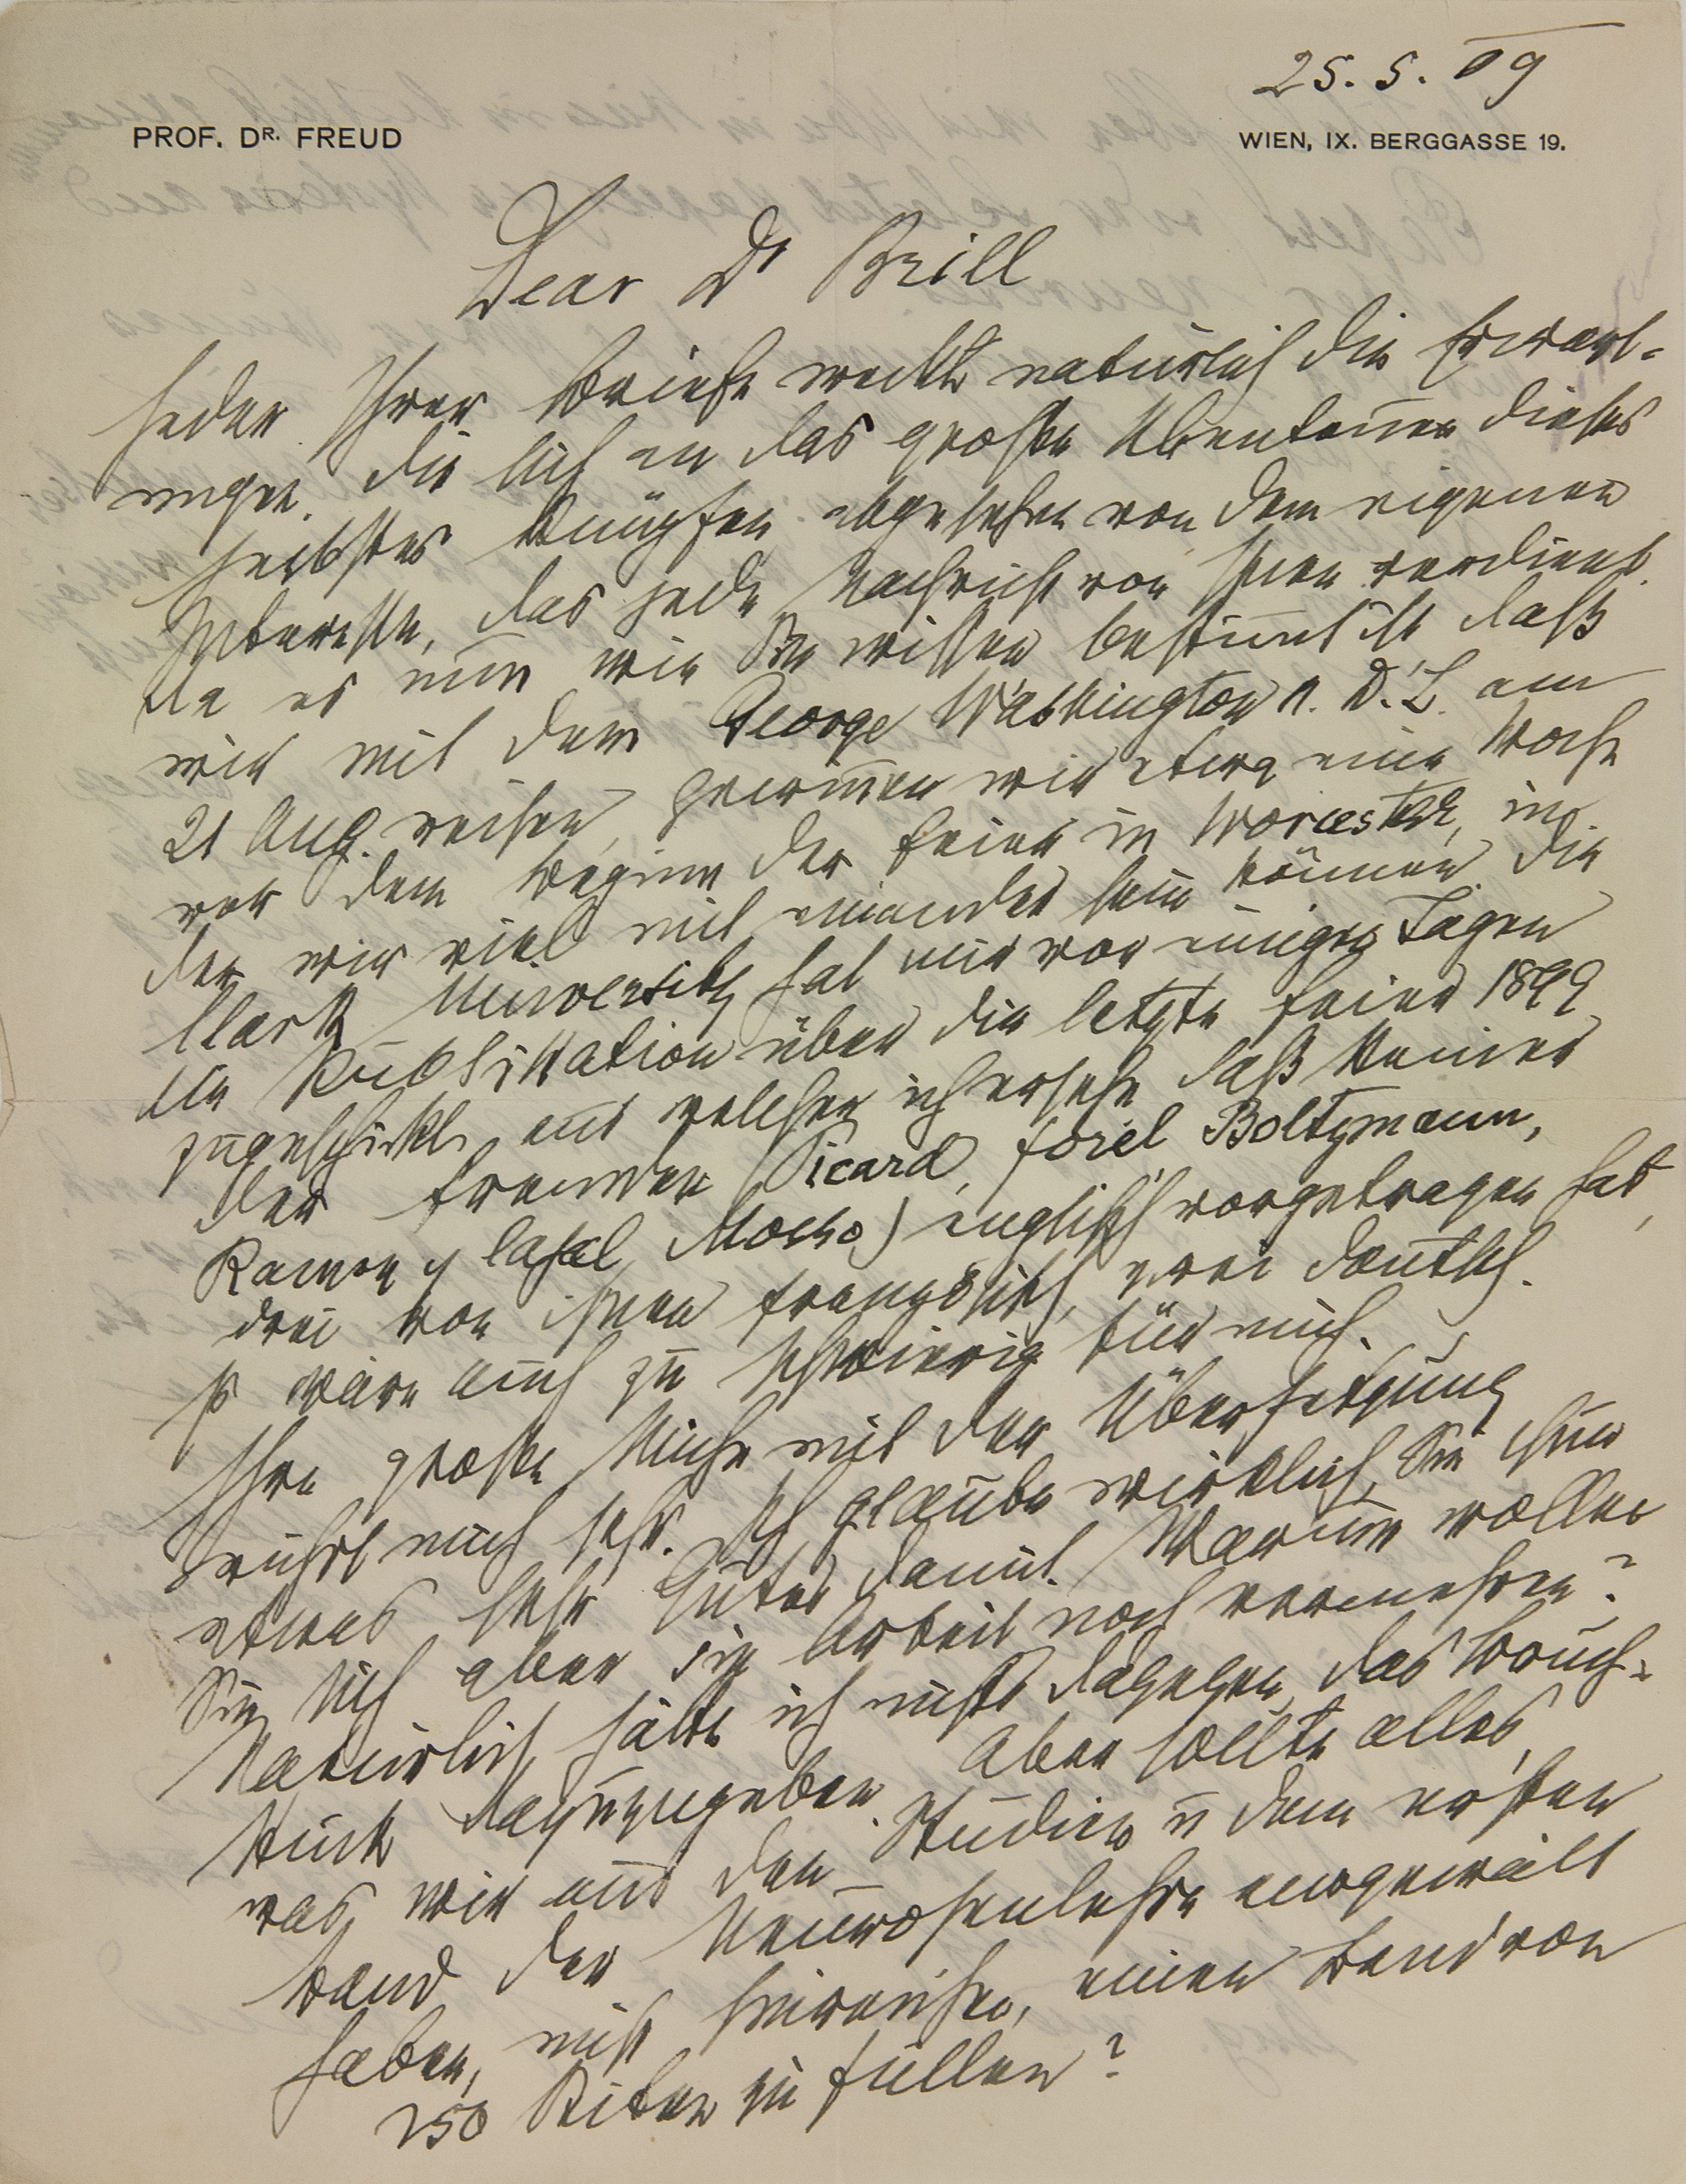 25. 5. 09
PROF. DR. FREUD
WIEN, IX. BERGGASSE 19.
Dear Dr Brill
Jeder Ihrer Briefe weckt natürlich die Erwart-
ungen, die sich an das große Abenteuer dieses
Herbstes knüpfen abgesehen von dem eigenen
Interesse, das jede Nachricht von Ihnen verdient.
Da es nun wie Sie wissen bestimt ist daß
wir mit dem George Washington N. D. L. am
21 Aug. reisen, gewinnen wir etwa eine Woche
vor dem Beginn der Feier in Worcester, in
der wir viel mit einander sein können. Die
Clark University hat mir vor einigen Tagen
die Publikation über die letzte Feier 1899
zugeschickt, aus welcher ich ersehe daß keiner
der Fremden (Picard, Forel Boltzmann,
Ramon y Cajal Mosso) englisch vorgetragen hat,
drei von ihnen französisch, zwei deutsch.
Es wäre auch zu schwierig für mich.
Ihre große Mühe mit der Übersetzung
rührt mich sehr. Ich glaube wirklich, Sie thun
etwas sehr Gutes damit. Warum wollen
Sie sich aber die Arbeit noch vermehren?
Natürlich hätte ich nichts dagegen, das Bruch-
stück dazuzugeben. Aber sollte alles,
was wir aus den Studien u dem ersten
Band der Neurosenlehre ausgewält
haben, nicht hinreichen, einen Band von
250 Seiten zu füllen?